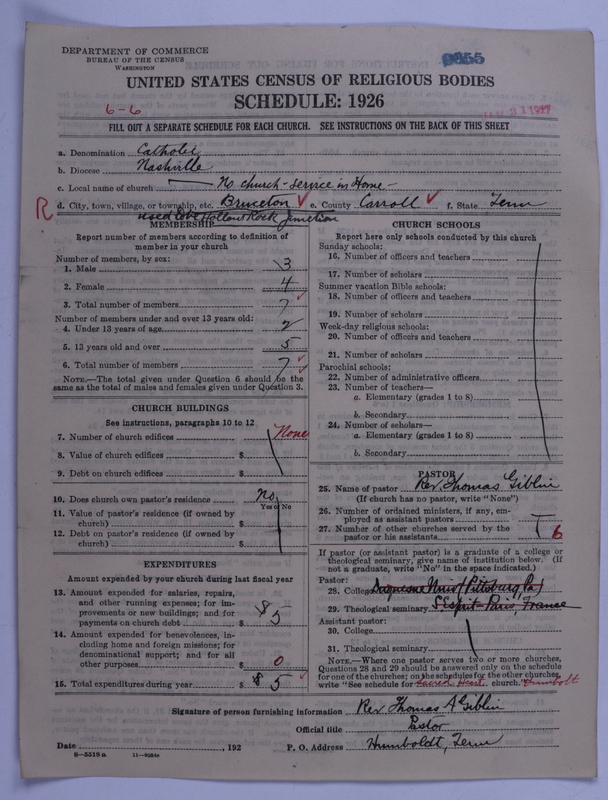 DEPARTMENT OF COMMERCE
BUREAU OF THE CENSUS
WASHINGTON
UNITED STATES CENSUS OF RELIGIOUS BODIES
SCHEDULE: 1926
6-6
FILL OUT A SEPARATE SCHEDULE FOR EACH CHURCH. SEE INSTRUCTIONS ON THE BACK OF THIS SHEET
a. Denomination Catholic
b. Diocese Nashville
c. Local name of church No church - service in Home -
R d. City, town, village, or township, etc. Bruceton e. County Carroll f. State Tenn
used to be Hollow Rock Junction
MEMBERSHIP
Report number of members according to definition of
member in your church
Number of members, by sex:
1. Male 3
2. Female 4
3. Total number of members 7
Number of members under and over 13 years old:
4. Under 13 years of age 2
5. 13 years old and over 5
6. Total number of members 7
NOTE.—The total given under Question 6 should be the
same as the total of males and females given under Question 3.
CHURCH BUILDINGS
See instructions, paragraphs 10 to 12
7. Number of church edifices None
8. Value of church edifices $
9. Debt on church edifices $
10. Does church own pastor's residence No
Yes or No
11. Value of pastor's residence (if owned by
church) $
12. Debt on pastor's residence (if owned by
church) $
EXPENDITURES
Amount expended by your church during last fiscal year
13. Amount expended for salaries, repairs,
and other running expenses; for im-
provements or new buildings; and for
payments on church debt $ 5
14. Amount expended for benevolences, in-
cluding home and foreign missions; for
denominational support; and for all
other purposes 0
15. Total expenditures during year $ 5
CHURCH SCHOOLS
Report here only schools conducted by this church
Sunday schools:
16. Number of officers and teachers
17. Number of scholars
Summer vacation Bible schools:
18. Number of officers and teachers
19. Number of scholars
Week-day religious schools:
20. Number of officers and teachers
21. Number of scholars
Parochial schools:
22. Number of administrative officers
23. Number of teachers—
a. Elementary (grades 1 to 8)
b. Secondary
24. Number of scholars—
a. Elementary (grades 1 to 8)
b. Secondary
PASTOR
25. Name of pastor Rev. Thomas Giblin
(If church has no pastor, write "None")
26. Number of ordained ministers, if any, em-
ployed as assistant pastors
27. Number of other churches served by the
pastor or his assistants 6
If pastor (or assistant pastor) is a graduate of a college or
theological seminary, give name of institution below. (If
not a graduate, write "No" in the space indicated.)
Pastor:
28. College Duquesne Univ (Pittsburg Pa)
29. Theological seminary S'Esprit - Paris, France
Assistant pastor:
30. College
31. Theological seminary
NOTE.—Where one pastor serves two or more churches,
Questions 28 and 29 should be answered only on the schedule
for one of the churches; on the schedules for the other churches,
write "See schedule for Sacred Heart church. Humbolt
Signature of person furnishing information Rev Thomas A Giblin
Official title Pastor
Date , 192 P. O. Address Humboldt, Tenn
8—5518a 11—9084a